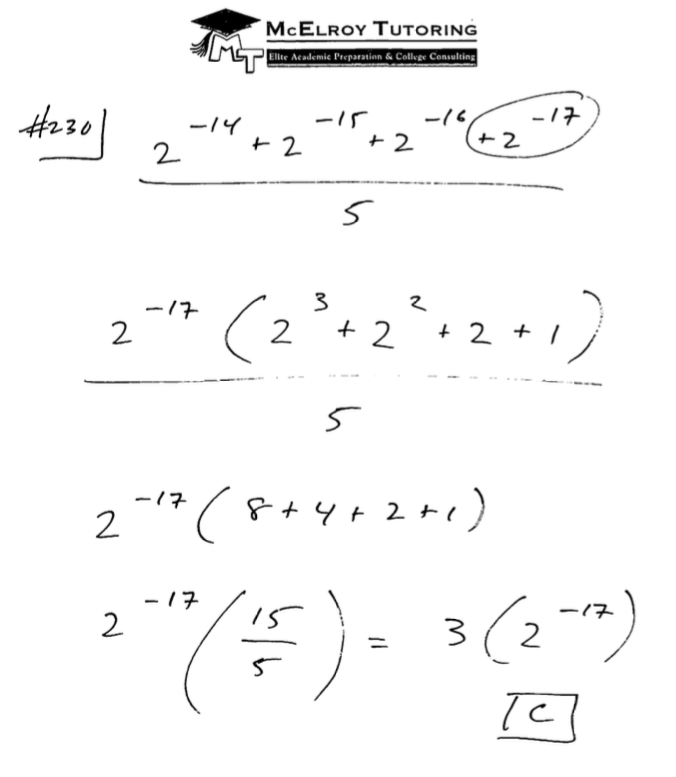 McELROY TUTORING
MT
Elite Academic Preparation & College Consulting
#230
2^-14 + 2^-15 + 2^-16 + 2^-17
5
2^-17 (2^3 + 2^2 + 2 + 1)
5
2^-17 (8 + 4 + 2 + 1)
2^-17 (15/5) = 3(2^-17)
C